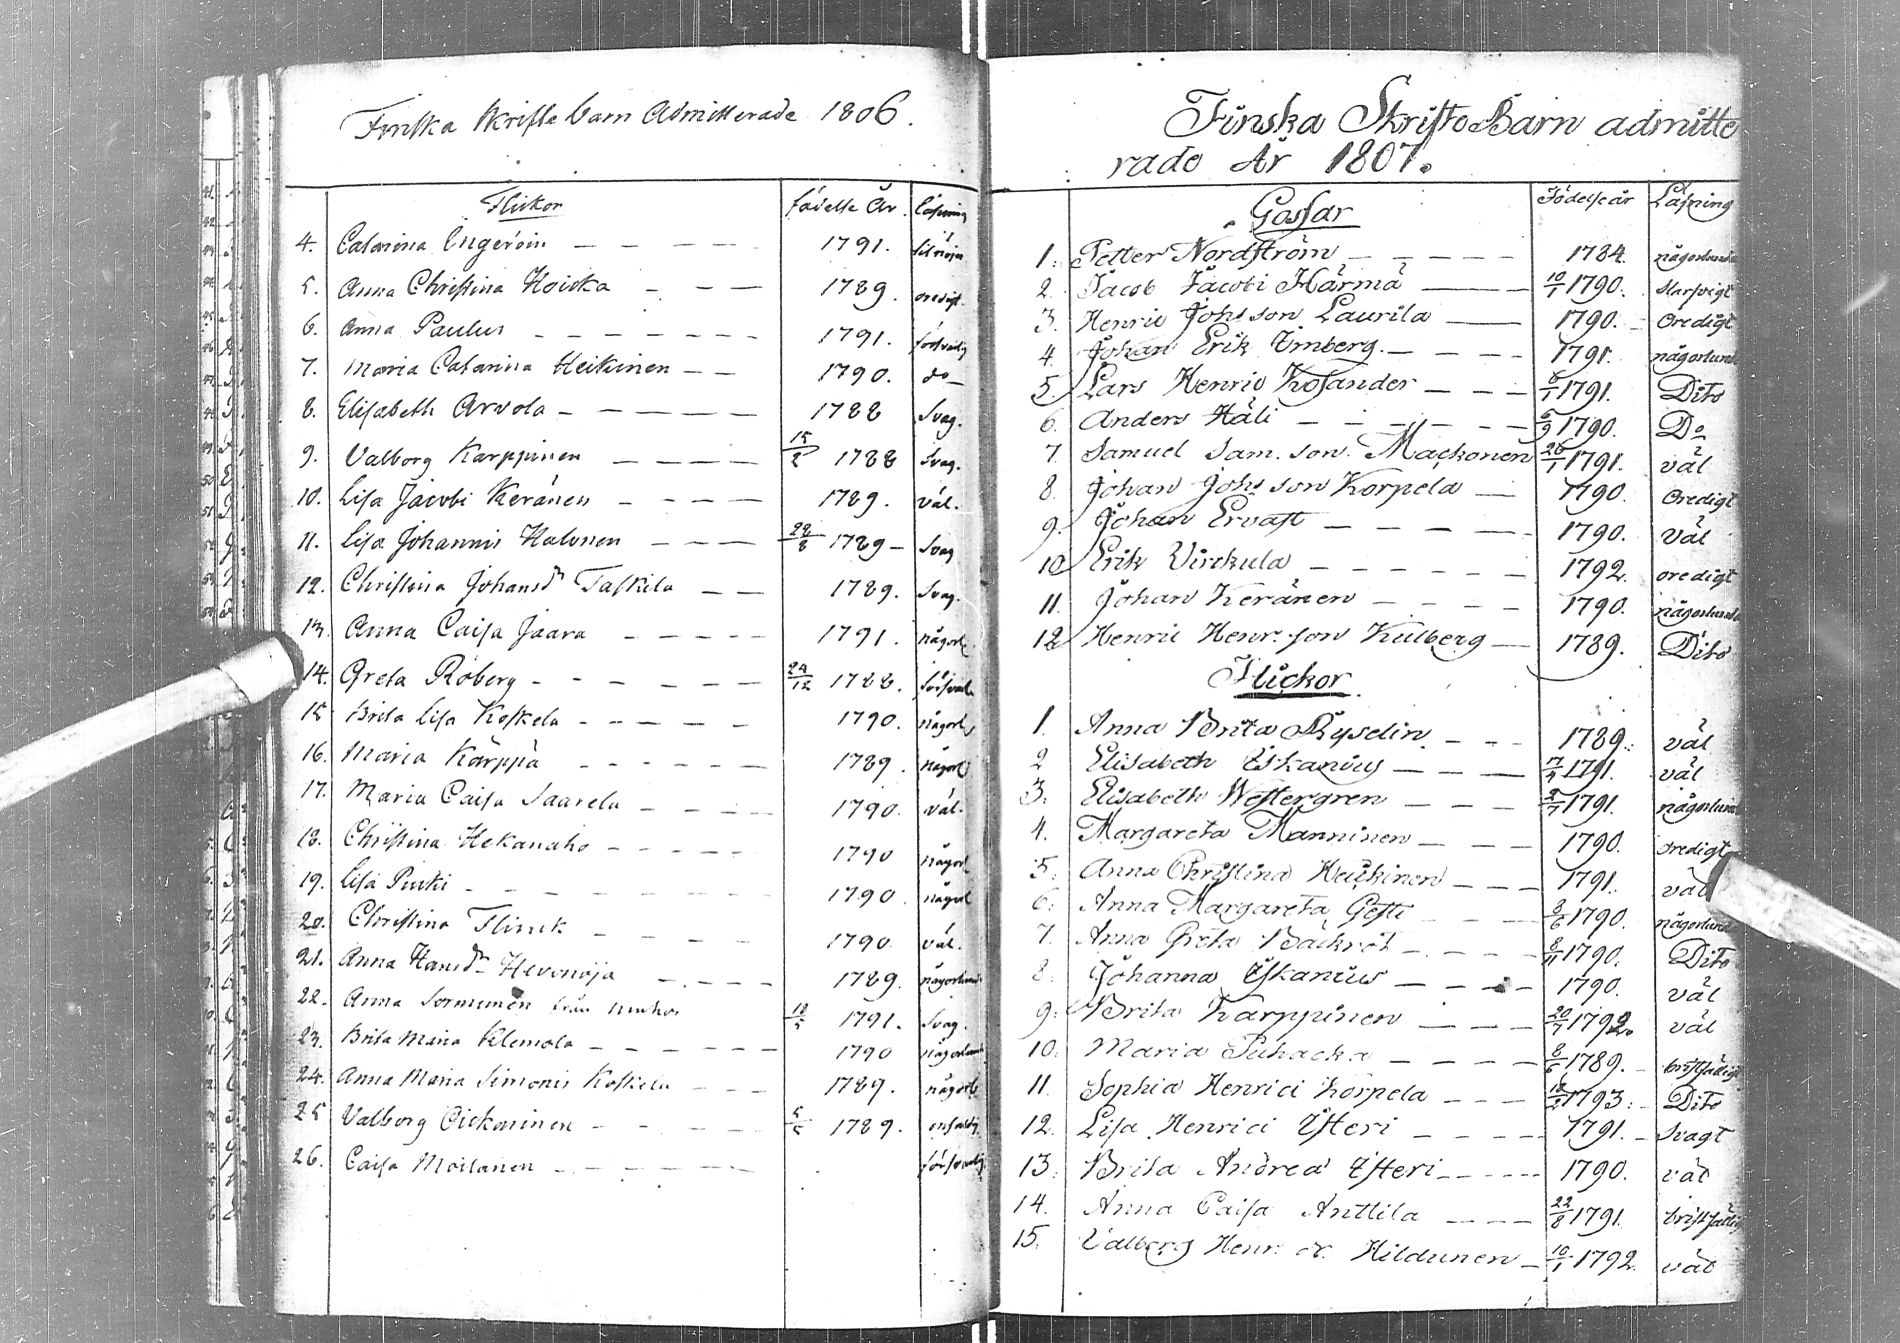 Finska Skriftebarn Admitterade 1806.
Flickor födelse År. läsning
4. Catarina Ingeroin 1791.
5. Anna Christina Hoicka 1789. oredigt.
6. Anna Paulus 1791. försvarlig
7. Maria Catarina Heikinen 1790. do
8. Elisabeth Arvola 1788 Svag.
9. Valborg Karppinen 15/2 1788 Svag.
10. Lisa Jacobi Keränen 1789. väl.
11. Lisa Johannis Halonen 28/8 1789 Svag
12. Christina Johansdr Taskila 1789. Svag.
13. Anna Caisa Jaara 1791. någorl.
14. Greta Roberg 24/12 1788. försvarl
15 Brita Lisa Koskela 1790. någorl
16. Maria Kärppä 1789. någorl
17. Maria Caisa Saarela 1790. väl.
18. Christina Hekanaho 1790 någorl
19. Lisa Purki 1790. någorl
20. Christina Flinck 1790. väl.
21. Anna Hansdr Hevonoja 1789. någorlunda
22. Anna Sormunen från Muhos 18/5 1791. Svag.
23. Brita Maria Klemola 1790 någorlunda
24. Anna Maria Simonis Koskela 1789. någorl
25 Valborg Pickarinen 5/5 1789. enfaldig
26. Caisa Moilanen försvarlig
Finska Skrifto Barn admitte
rade År 1807.
Gossar Födelseår Läsning
1. Petter Nordström 1784. någorlunda
2. Jacob Jacobi Härmä 10/1 1790. slarfvigt
3. Henric Johs son Laurila 1790. Oredigt
4 Johan Erik Imberg 1791. någorlunda
5. Lars Henric Kosander 6/1 1791. Dito
6. Anders Häli 6/9 1790. Do
7. Samuel Sam. son Mackonen 26/1 1791. väl
8. Johan Johs son Korpela 1790. Oredigt
9. Johan Ervast 1790. väl
10 Erik Virckula 1792. oredigt
11. Johan Keränen 1790. någorlunda
12 Henric Henr. son Kulberg 1789. Dito
Flickor
1. Anna Brita Ryselin 1789. väl
2 Elisabeth Eskanius 17/4 1791. väl
3. Elisabeth Westergren 2/7 1791. någorlunda
4. Margareta Manninen 1790. oredigt
5. Anna Christina Heickinen 1791. väl
6. Anna Margareta Gesti 8/6 1790. någorlunda
7. Anna Greta Bäckrot 8/11 1790. Dito
8. Johanna Eskanius 1790. väl
9. Brita Karppinen 20/7 1792. väl
10. Maria Puhacka 8/6 1789. bristfälligt
11. Sophia Henrici Korpela 12/2 1793. Dito
12. Lisa Henrici Ysteri 1791. Svagt
13. Brita Andreæ Ysteri 1790. väl
14. Anna Caisa Anttila 22/8 1791. bristfällig
15. Valborg Henr. dr. Hildunen 10/1 1792. väl